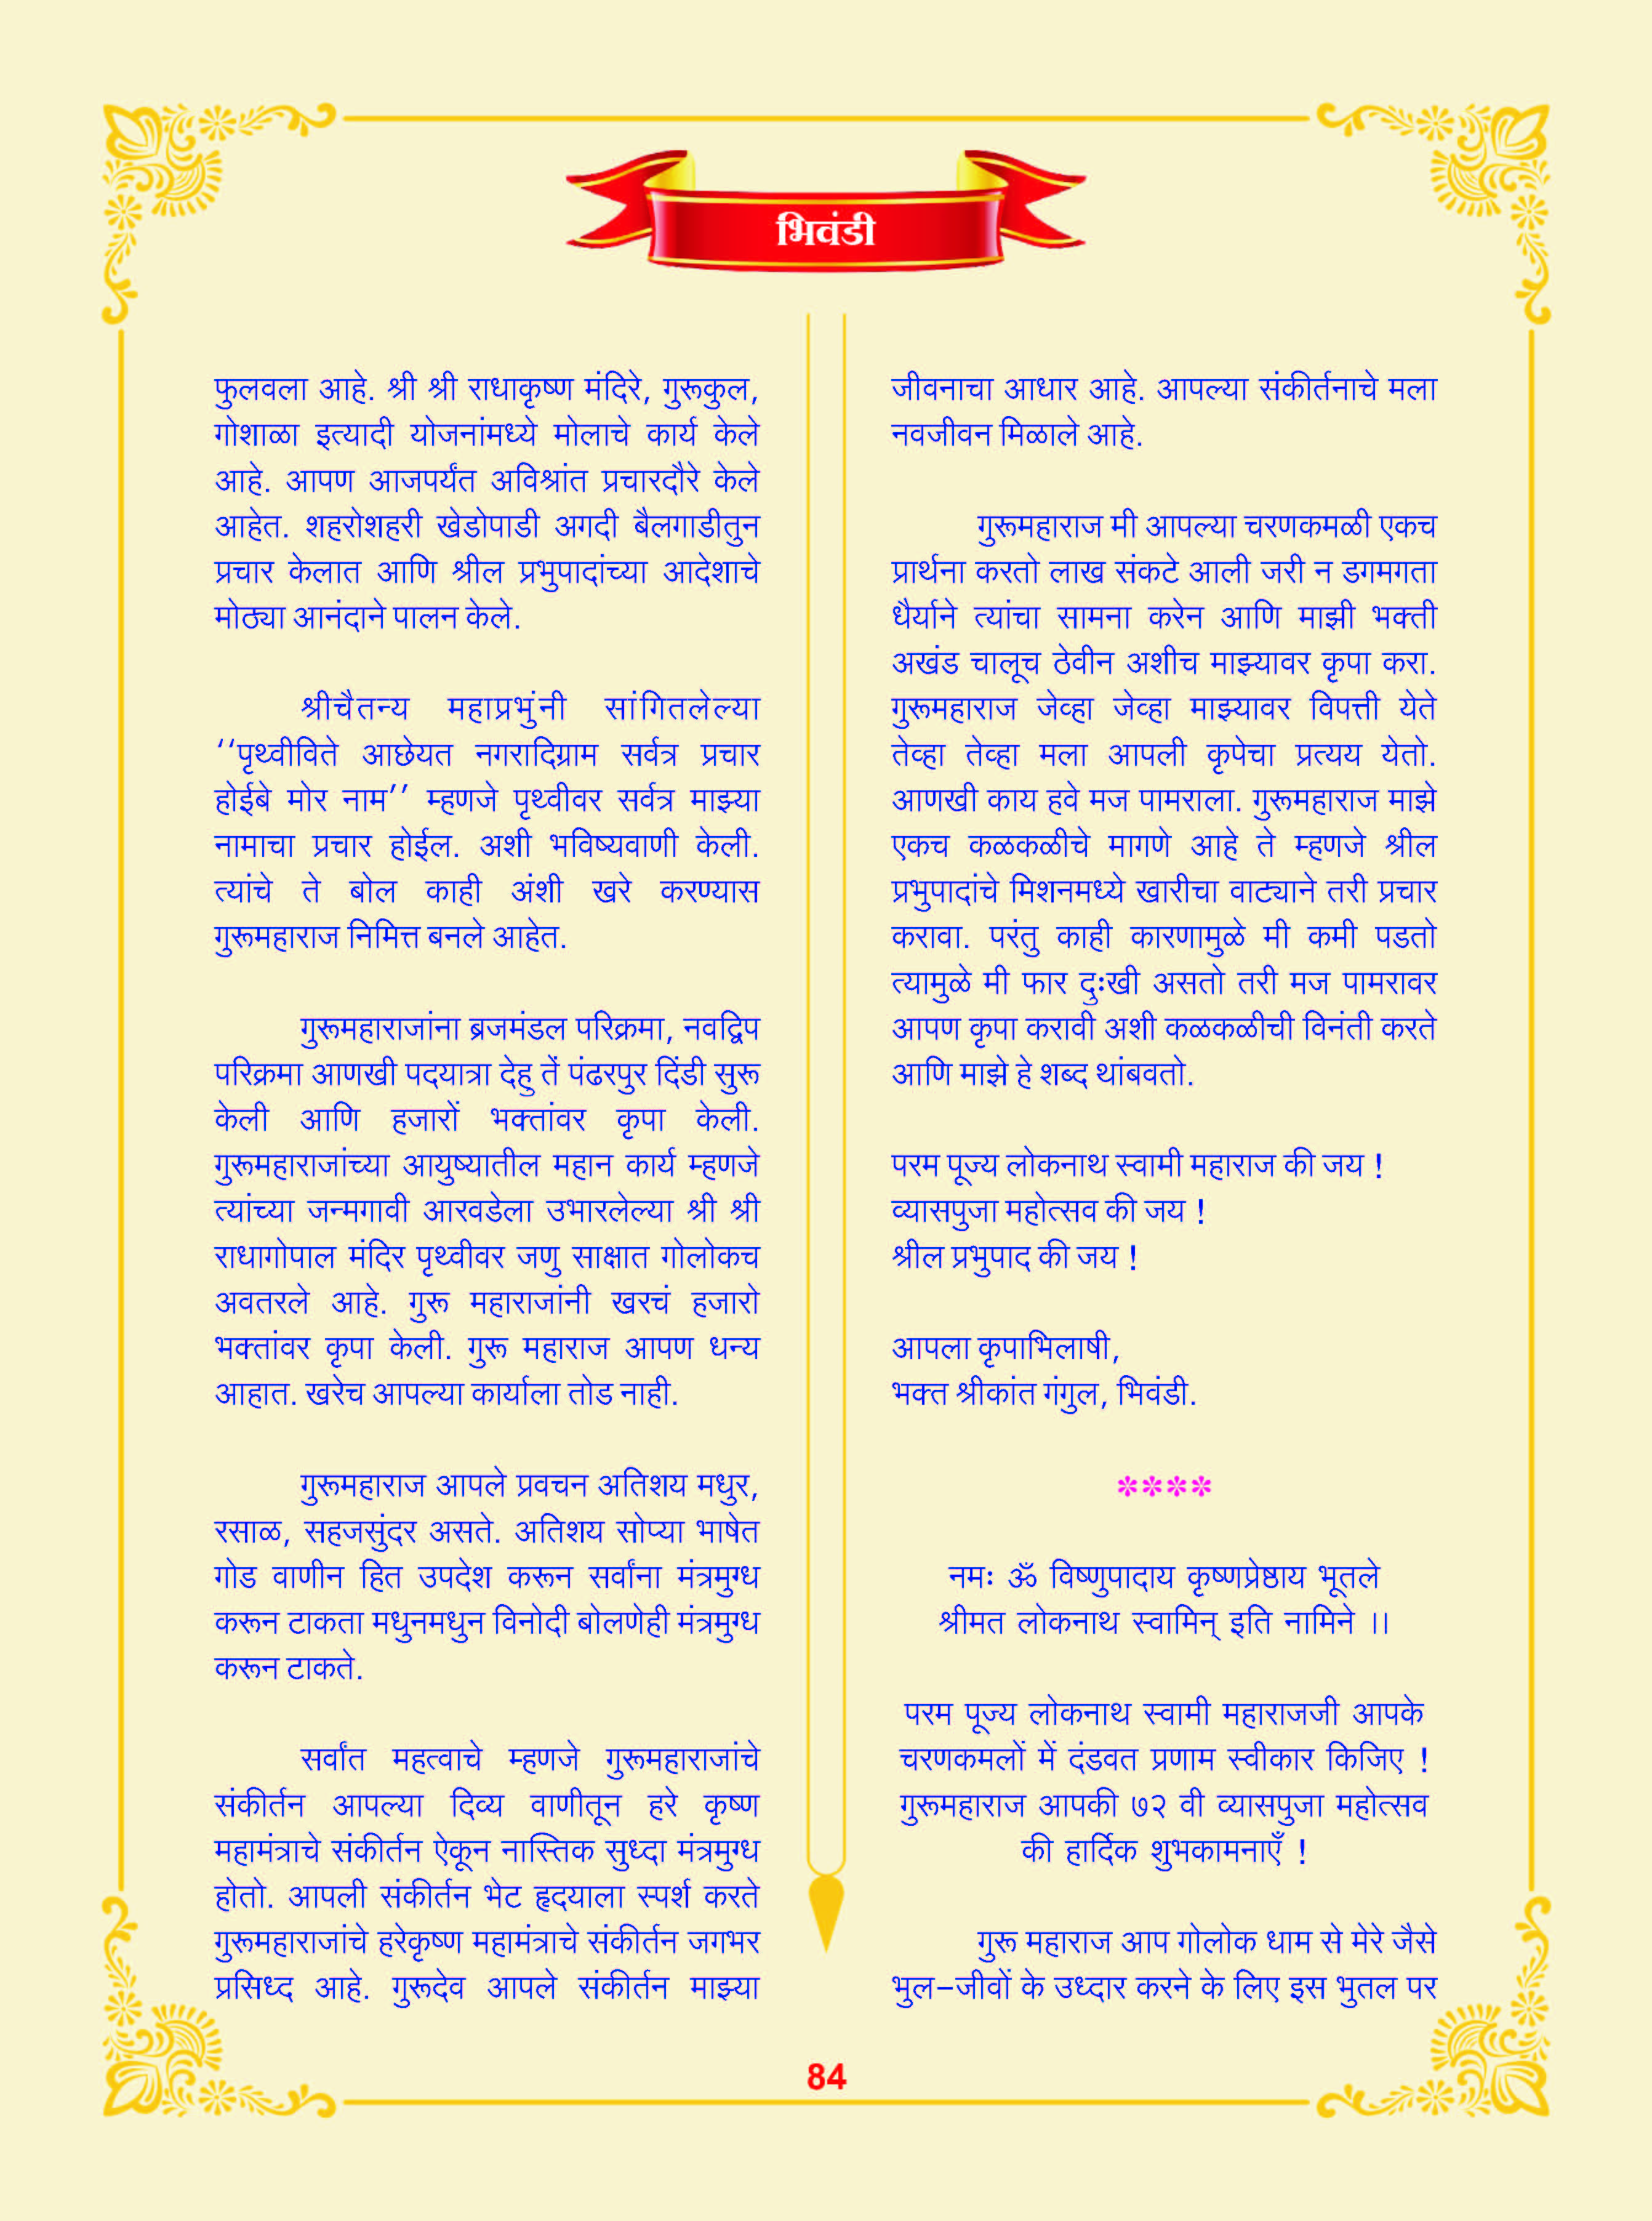 भिवंडी
फुलवला आहे. श्री श्री राधाकृष्ण मंदिरे, गुरूकुल,
गोशाळा इत्यादी योजनांमध्ये मोलाचे कार्य केले
आहे. आपण आजपर्यंत अविश्रांत प्रचारदौरे केले
आहेत. शहरोशहरी खेडोपाडी अगदी बैलगाडीतुन
प्रचार केलात आणि श्रील प्रभुपादांच्या आदेशाचे
मोठ्या आनंदाने पालन केले.
श्रीचैतन्य महाप्रभुंनी सांगितलेल्या
‘‘पृथ्वीविते आछेयत नगरादिग्राम सर्वत्र प्रचार
होईबे मोर नाम’’ म्हणजे पृथ्वीवर सर्वत्र माझ्या
नामाचा प्रचार होईल. अशी भविष्यवाणी केली.
त्यांचे ते बोल काही अंशी खरे करण्यास
गुरूमहाराज निमित्त बनले आहेत.
गुरूमहाराजांना ब्रजमंडल परिक्रमा, नवद्विप
परिक्रमा आणखी पदयात्रा देहु तें पंढरपुर दिंडी सुरू
केली आणि हजारों भक्तांवर कृपा केली.
गुरूमहाराजांच्या आयुष्यातील महान कार्य म्हणजे
त्यांच्या जन्मगावी आरवडेला उभारलेल्या श्री श्री
राधागोपाल मंदिर पृथ्वीवर जणु साक्षात गोलोकच
अवतरले आहे. गुरू महाराजांनी खरचं हजारो
भक्तांवर कृपा केली. गुरू महाराज आपण धन्य
आहात. खरेच आपल्या कार्याला तोड नाही.
गुरूमहाराज आपले प्रवचन अतिशय मधुर,
रसाळ, सहजसुंदर असते. अतिशय सोप्या भाषेत
गोड वाणीन हित उपदेश करून सर्वांना मंत्रमुग्ध
करून टाकता मधुनमधुन विनोदी बोलणेही मंत्रमुग्ध
करून टाकते.
सर्वांत महत्वाचे म्हणजे गुरूमहाराजांचे
संकीर्तन आपल्या दिव्य वाणीतून हरे कृष्ण
महामंत्राचे संकीर्तन ऐकून नास्तिक सुध्दा मंत्रमुग्ध
होतो. आपली संकीर्तन भेट हृदयाला स्पर्श करते
गुरूमहाराजांचे हरेकृष्ण महामंत्राचे संकीर्तन जगभर
प्रसिध्द आहे. गुरूदेव आपले संकीर्तन माझ्या
जीवनाचा आधार आहे. आपल्या संकीर्तनाचे मला
नवजीवन मिळाले आहे.
गुरूमहाराज मी आपल्या चरणकमळी एकच
प्रार्थना करतो लाख संकटे आली जरी न डगमगता
धैर्याने त्यांचा सामना करेन आणि माझी भक्ती
अखंड चालूच ठेवीन अशीच माझ्यावर कृपा करा.
गुरूमहाराज जेव्हा जेव्हा माझ्यावर विपत्ती येते
तेव्हा तेव्हा मला आपली कृपेचा प्रत्यय येतो.
आणखी काय हवे मज पामराला. गुरूमहाराज माझे
एकच कळकळीचे मागणे आहे ते म्हणजे श्रील
प्रभुपादांचे मिशनमध्ये खारीचा वाट्याने तरी प्रचार
करावा. परंतु काही कारणामुळे मी कमी पडतो
त्यामुळे मी फार दुःखी असतो तरी मज पामरावर
आपण कृपा करावी अशी कळकळीची विनंती करते
आणि माझे हे शब्द थांबवतो.
परम पूज्य लोकनाथ स्वामी महाराज की जय !
व्यासपुजा महोत्सव की जय !
श्रील प्रभुपाद की जय !
आपला कृपाभिलाषी,
भक्त श्रीकांत गंगुल, भिवंडी.
****
नमः ॐ विष्णुपादाय कृष्णप्रेष्ठाय भूतले
श्रीमत लोकनाथ स्वामिन् इति नामिने ।।
परम पूज्य लोकनाथ स्वामी महाराजजी आपके
चरणकमलों में दंडवत प्रणाम स्वीकार किजिए !
गुरूमहाराज आपकी ७२ वी व्यासपुजा महोत्सव
की हार्दिक शुभकामनाएँ !
गुरू महाराज आप गोलोक धाम से मेरे जैसे
भुल-जीवों के उध्दार करने के लिए इस भुतल पर
84